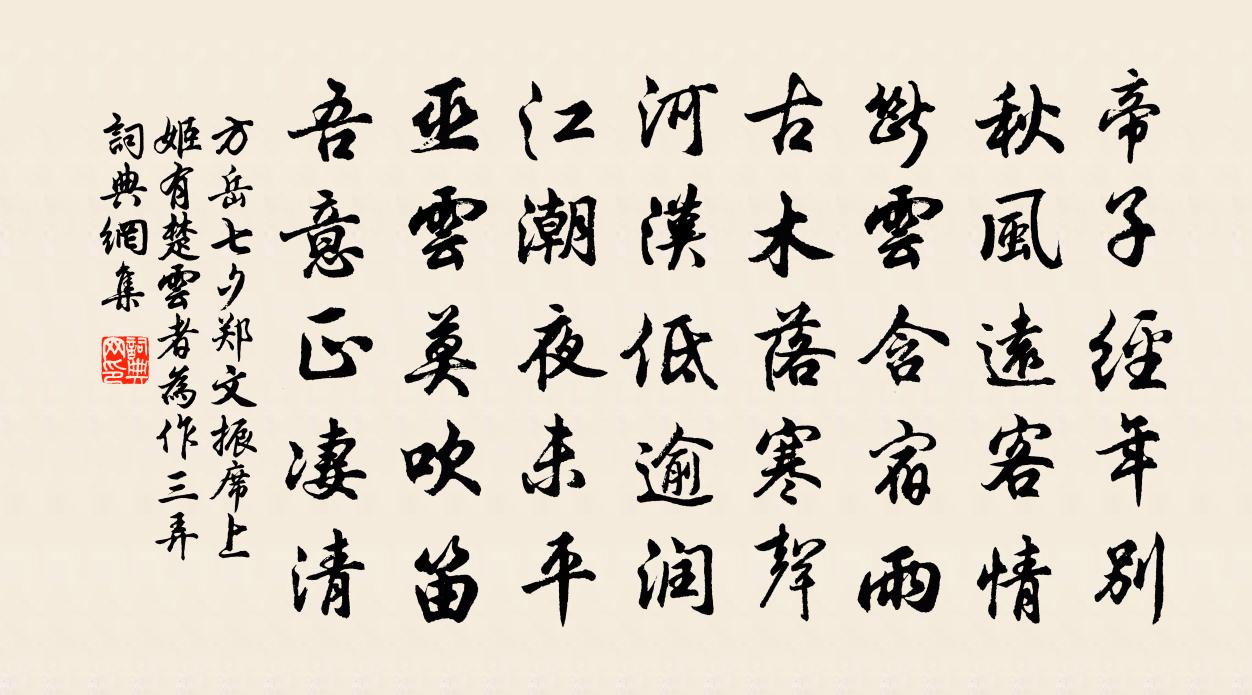 帝子經年别
秋風遠客情
斷雲含宿雨
古木落寒聲
河漢低逾润
江潮夜未平
巫雲莫吹笛
吾意正凄清
方岳七夕郑文振席上
姬有楚雲者為作三弄
詞典網集
詞典网印